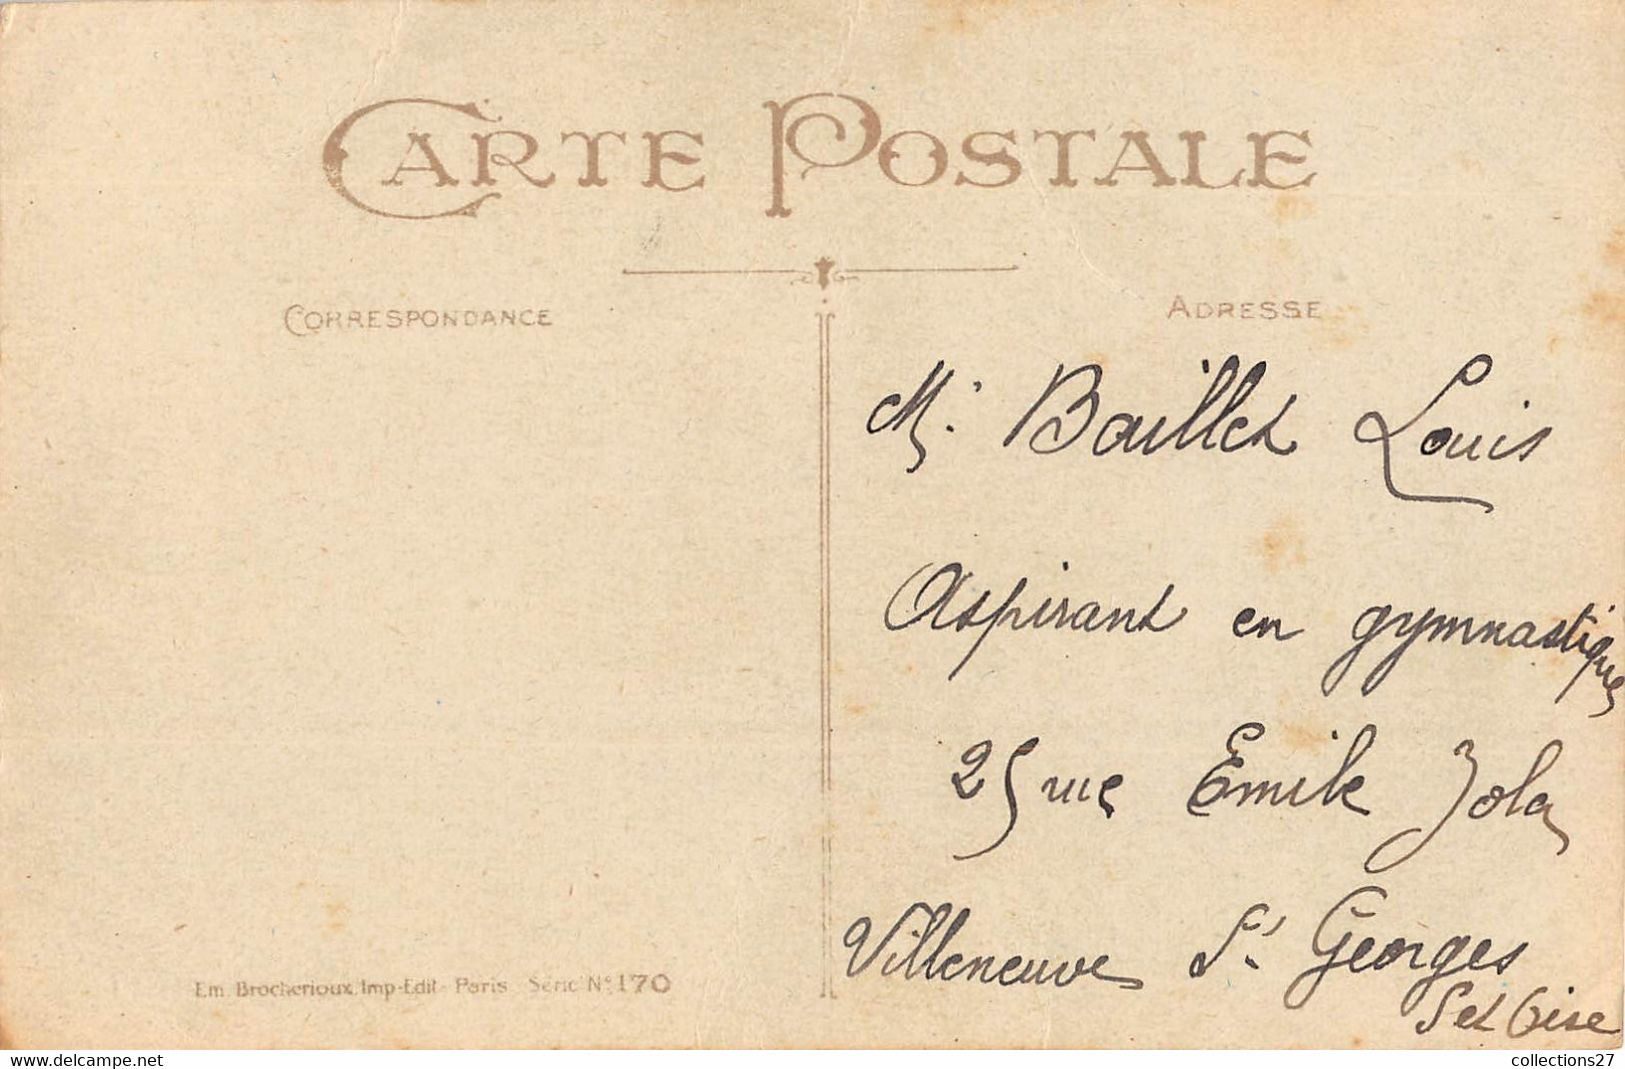 CARTE POSTALE
CORRESPONDANCE
ADRESSE
Mr Baillet Louis
Aspirant en gymnastique
25 rue Emile Zola
Villeneuve St Georges
S et Oise
Em. Brocherioux, Imp-Edit - Paris Série No 170
https://www.delcampe.net
collections27